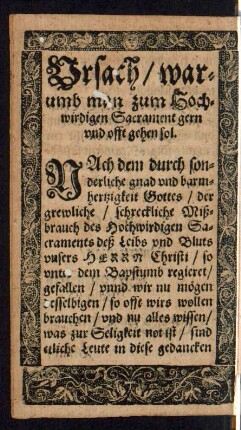 Vrsach / war-
umb man zum Hoch-
wirdigen Sacrament gern
vnd offt gehen sol.
NAch dem durch son-
derliche gnad vnd barm-
hertzigkeit Gottes / der
grewliche / schreckliche Miß-
brauch des Hochwirdigen Sa-
craments deß Leibs vnd Bluts
vnsers HERRN Christi / so
vnter dem Bapstumb regieret /
gefallen / vnnd wir nu mögen
desselbigen / so offt wirs wollen
brauchen / vnd nu alles wissen /
was zur Seligkeit not ist / sind
etliche Leute in diese gedancken